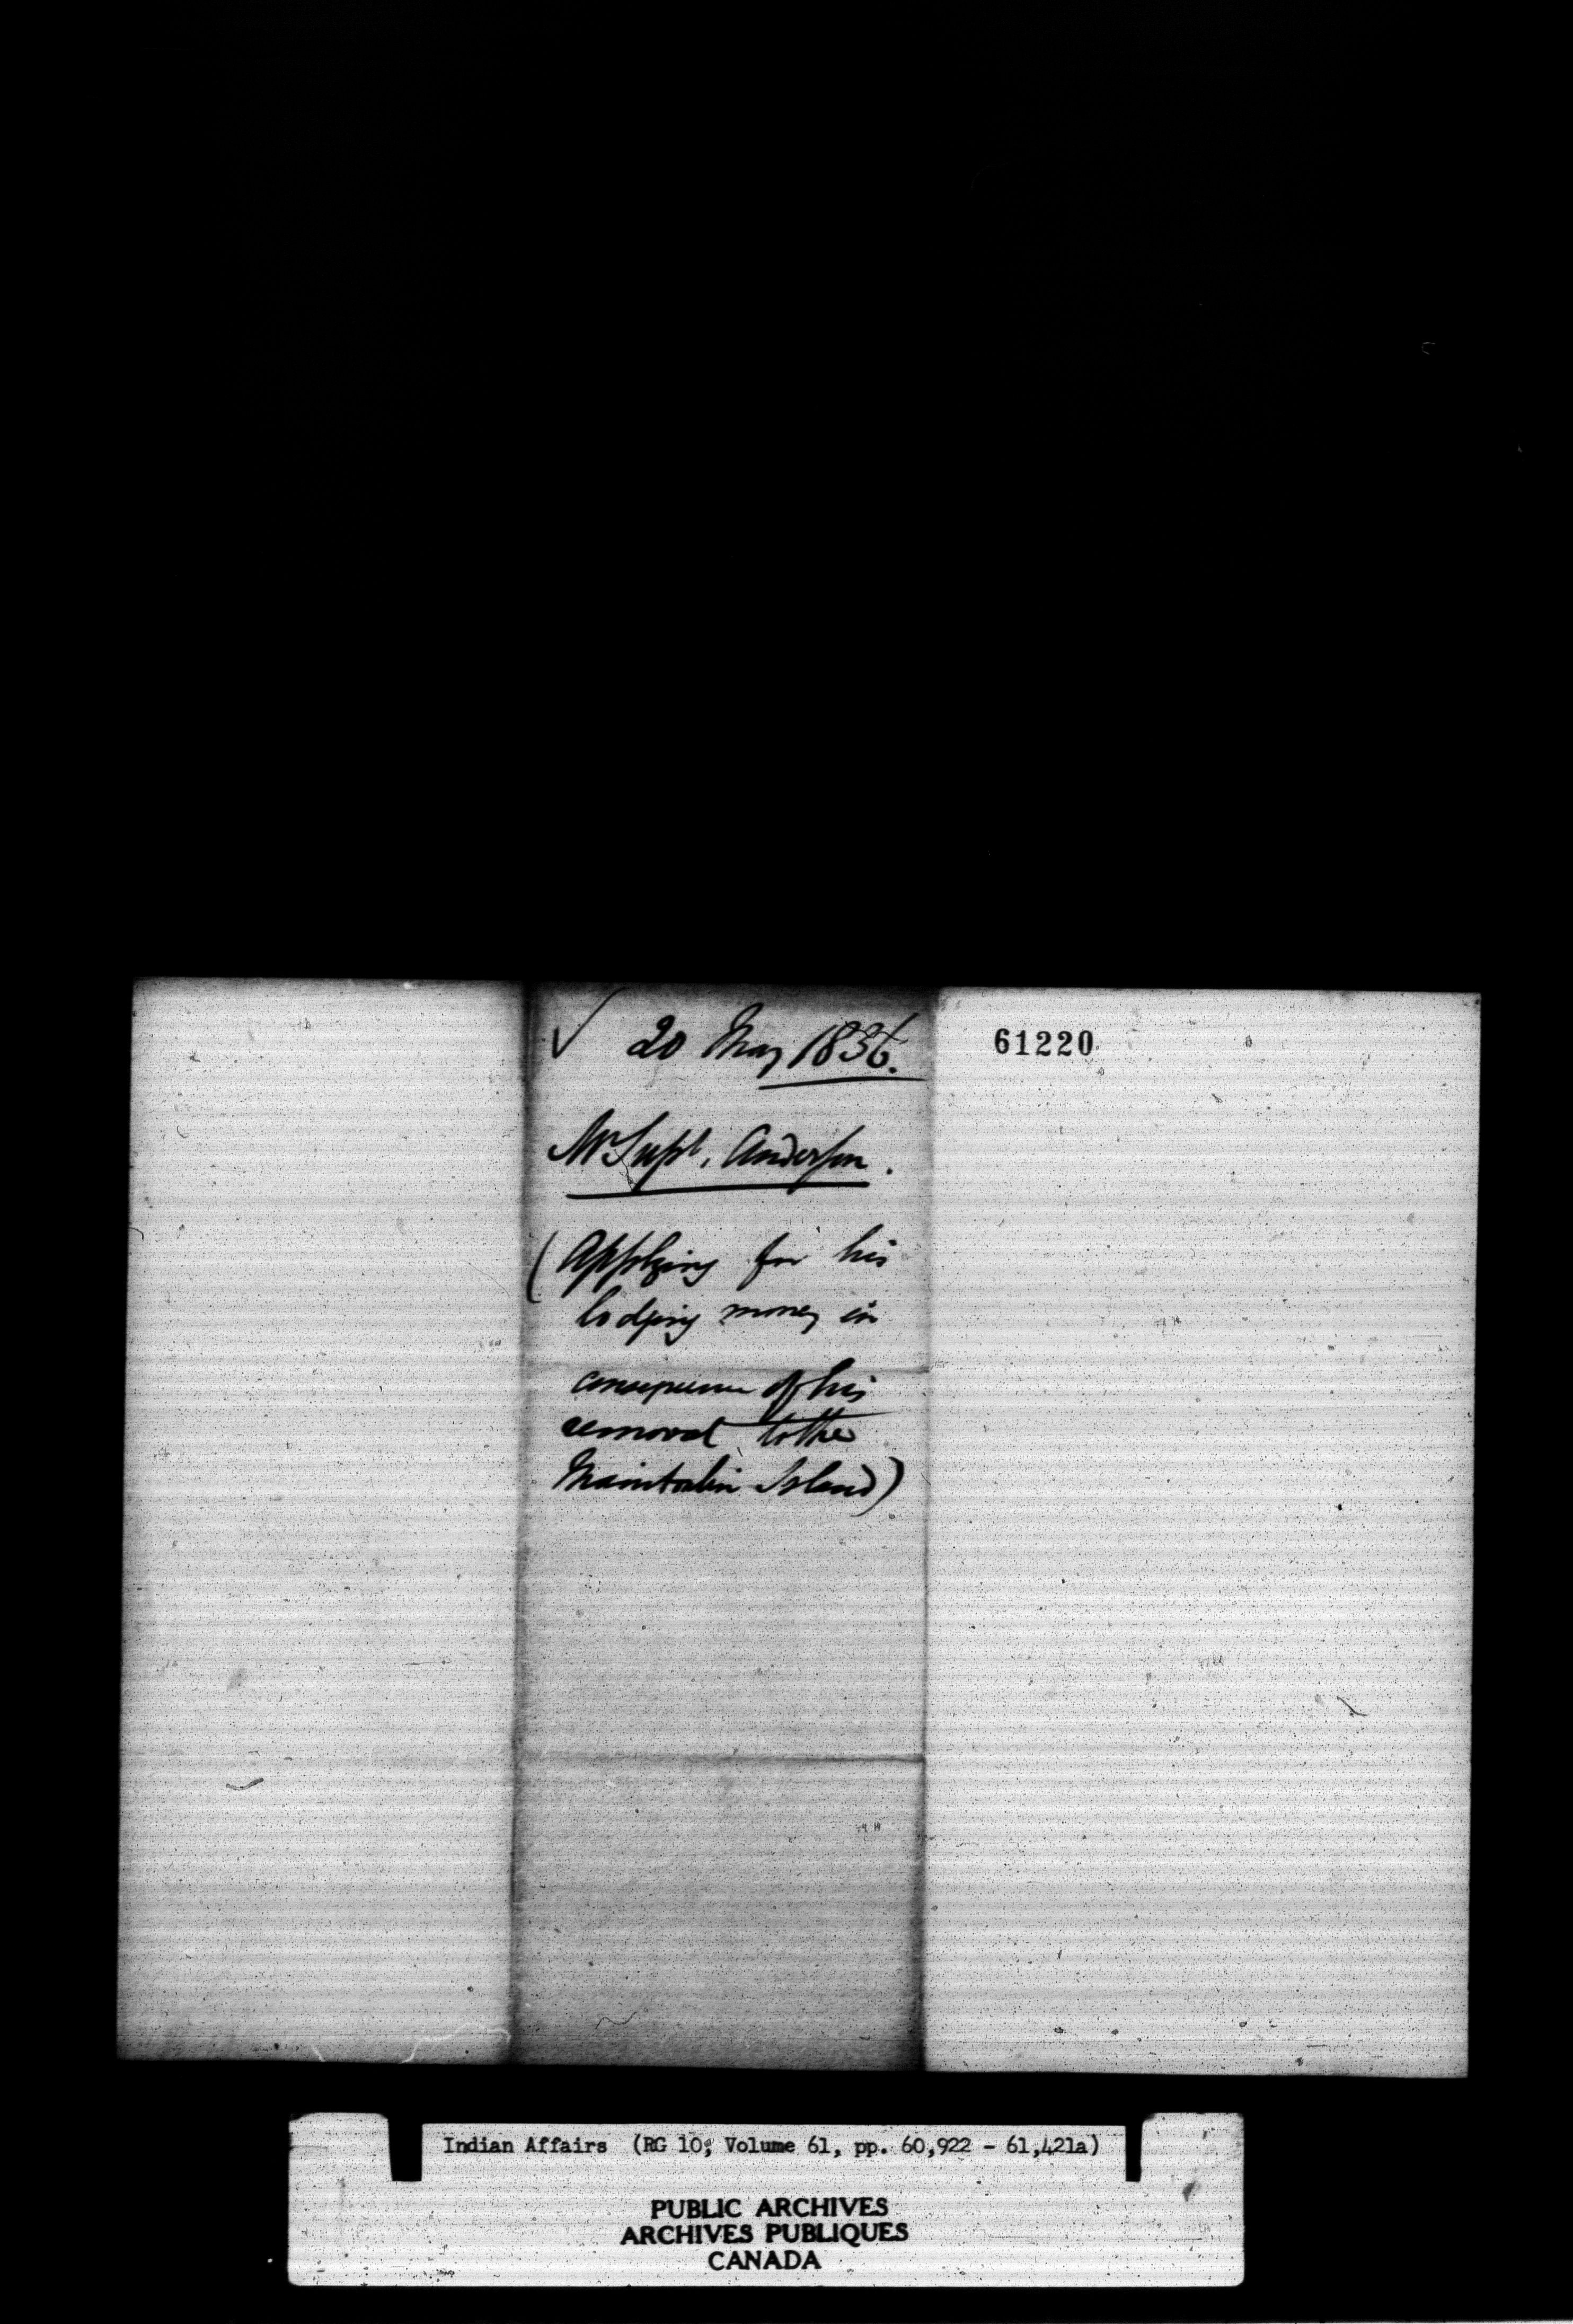 ✓ 20 May 1836.
61220
Mr Supt. Anderson.
(Applying for his
lodging money in
consequence of his
removal to the
Manitoulin Island)
Indian Affairs (RG 10, Volume 61, pp. 60,922 - 61,421a)
PUBLIC ARCHIVES
ARCHIVES PUBLIQUES
CANADA